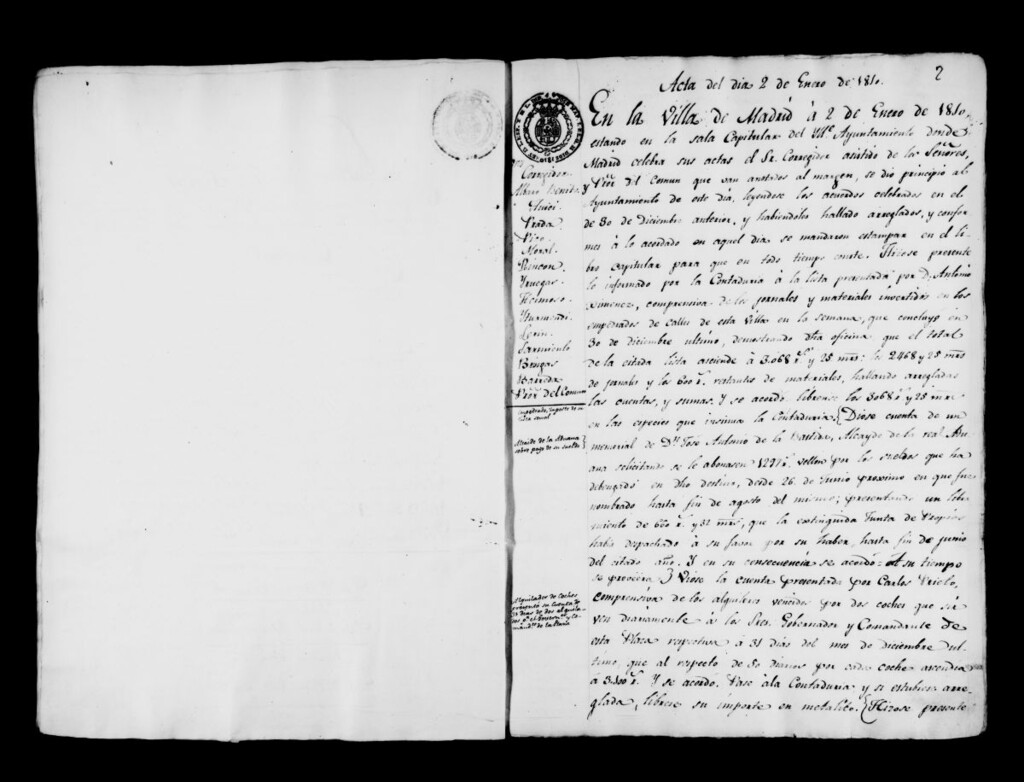 2
Acta del dia 2 de Enero de 1810.
En la Villa de Madrid à 2 de Enero de 1810.
estando en la sala Capitular del Ylle Ayuntamiento donde
Madrid celebra sus actas el Sr. Corregidor asistido de los Señores,
y Pror del Comun que van anotados al margen, se dio principio al
Ayuntamiento de este dia, leyendose los acuerdos celebrados en el
de 30 de Diciembre anterior, y habiendolos hallado arreglados, y confor
mes à lo acordado en aquel dia se mandaron estampar en el li
bro capitular para que en todo tiempo conste. Hizose presente
lo informado por la Contaduria à la lista presentada por Dn Antonio
Ximenez, comprensiva de los jornales y materiales invertidos en los
empedrados de calles de esta Villa en la semana, que concluyó en
30 de diciembre ultimo, demostrando dha oficina que el total
de la citada lista asciende à 3.068 rs y 25 mrs: los 2468 y 25 mrs
de jornales y los 600 rs restantes de materiales, hallando arregladas
las cuentas, y sumas. Y se acordó librense los 3068 rs y 25 mrs
en las especies que insinua la Contaduria. Diose cuenta de un
memorial de Dn Jose Antonio de la Bastida, Alcayde de la real Adu
ana solicitando se le abonasen 1297 rs vellon por los sueldos que ha
debengado en dho destino, desde 26 de Junio proximo en que fue
nombrado hasta fin de agosto del mismo; presentando un libra
miento de 660 rs y 31 mrs, que la extinguida Junta de Propios
habia despachado à su favor por su haber hasta fin de junio
del citado año. Y en su consecuencia se acordó: A su tiempo
se proveera. Viose la cuenta presentada por Carlos
comprensiva de los alquileres vencidos por dos coches que sir
ven diariamente à los Sres. Gobernador y Comandante de
esta Plaza respectiva à 31 dias del mes de diciembre ul
timo, que al respecto de 50 diarios por cada coche ascendia
à 3.100 rs. Y se acordó. Pase à la Contaduria y si estubiese arre
glada, librese su importe en metalico. Hizose presente
Corregidor
Prada
Moral
Rincon
Bruegas
Hermoso
Sarmiento
Barreda
Pror del Comun
Alcaide de la Aduana
sobre pago de su sueldo
Alquilador de Coches
presentó su cuenta de
31 dias de dos alquila